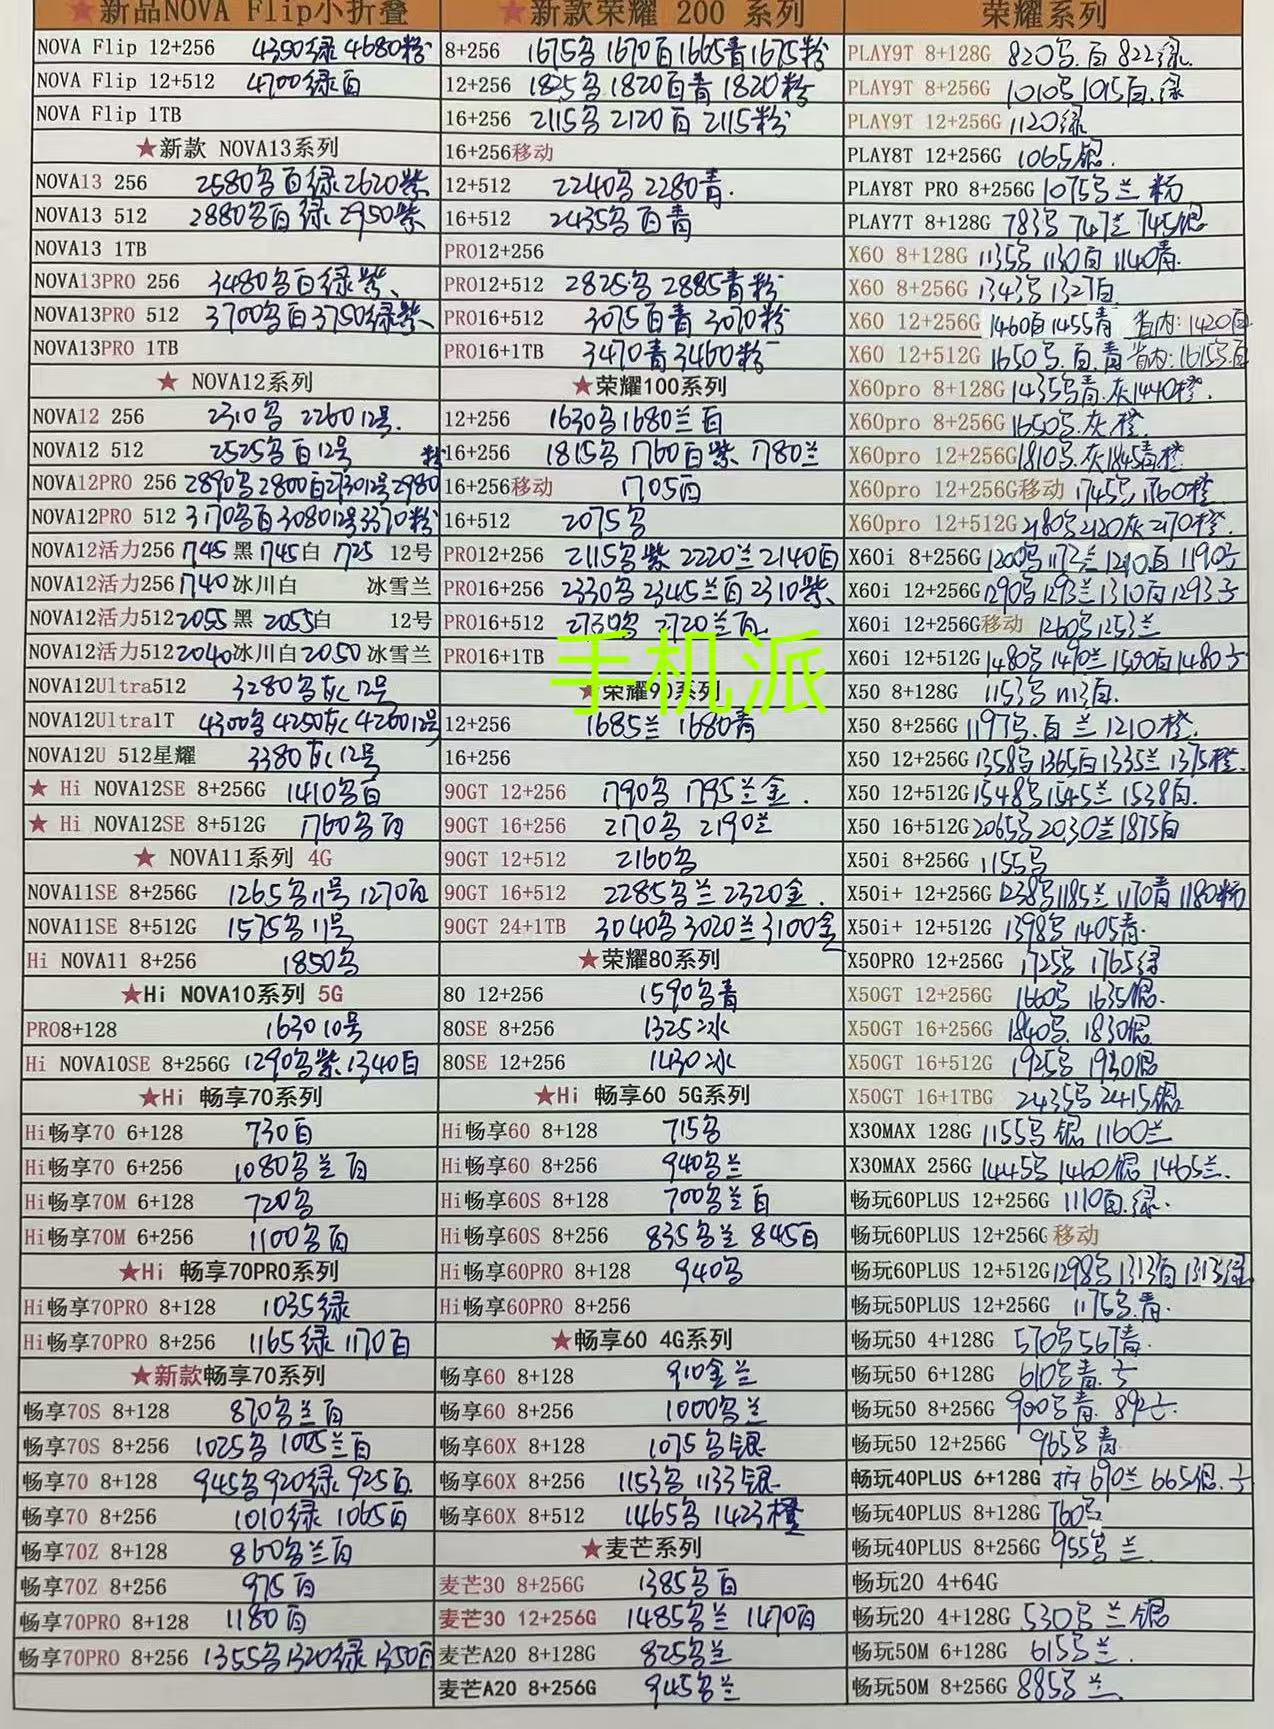 ★新品NOVA Flip小折叠
NOVA Flip 12+256 4350绿 4680粉
NOVA Flip 12+512 4700绿白
NOVA Flip 1TB
★新款 NOVA13系列
NOVA13 256 2580黑白绿 2620紫
NOVA13 512 2880黑白绿 2950紫
NOVA13 1TB
NOVA13PRO 256 3480黑白绿紫
NOVA13PRO 512 3700黑白 3750绿紫
NOVA13PRO 1TB
★ NOVA12系列
NOVA12 256 2310黑 2260 12号
NOVA12 512 2525黑白12号 粉
NOVA12PRO 256 2890黑 2800白 2730 12号 2980
NOVA12PRO 512 3170黑白 3080 12号 3370粉
NOVA12活力256 1745 黑 1745白 1725 12号
NOVA12活力256 1740 冰川白 冰雪兰
NOVA12活力512 2055 黑 2055白 12号
NOVA12活力512 2040冰川白 2050 冰雪兰
NOVA12Ultra512 3280黑灰 12号
NOVA12Ultra1T 4300黑 4250灰 4260 12号
NOVA12U 512星耀 3380灰 12号
★ Hi NOVA12SE 8+256G 1410黑白
★ Hi NOVA12SE 8+512G 1760黑白
★ NOVA11系列 4G
NOVA11SE 8+256G 1265黑11号 1270白
NOVA11SE 8+512G 1575黑11号
Hi NOVA11 8+256 1850黑
★Hi NOVA10系列 5G
PRO8+128 1630 10号
Hi NOVA10SE 8+256G 1290黑紫 1340白
★Hi 畅享70系列
Hi畅享70 6+128 730白
Hi畅享70 6+256 1080黑兰白
Hi畅享70M 6+128 720黑
Hi畅享70M 6+256 1100黑白
★Hi 畅享70PRO系列
Hi畅享70PRO 8+128 1035绿
Hi畅享70PRO 8+256 1165绿 1170白
★新款畅享70系列
畅享70S 8+128 870黑兰白
畅享70S 8+256 1025黑 1005兰白
畅享70 8+128 945黑 920绿 925白
畅享70 8+256 1010绿 1065白
畅享70Z 8+128 860黑兰白
畅享70Z 8+256 975白
畅享70PRO 8+128 1180白
畅享70PRO 8+256 1355黑 1320绿 1350白
★新款荣耀 200 系列
8+256 1675黑 1670白 1665青 1675粉
12+256 1825黑 1820白青 1820粉
16+256 2115黑 2120白 2115粉
16+256移动
12+512 2240黑 2280青.
16+512 2435黑白青
PRO12+256
PRO12+512 2825黑 2885青粉
PRO16+512 3075白青 3070粉
PRO16+1TB 3470青 3460粉
★荣耀100系列
12+256 1630黑 1680兰白
16+256 1815黑 1760白紫 1780兰
16+256移动 1705白
16+512 2075黑
PRO12+256 2115黑紫 2220兰 2140白
PRO16+256 2330黑 2345兰白 2310紫
PRO16+512 2730黑 2720兰白
PRO16+1TB
手机派
★荣耀90系列
12+256 1685兰 1680青
16+256
90GT 12+256 1790黑 1795兰金.
90GT 16+256 2170黑 2190兰
90GT 12+512 2160黑
90GT 16+512 2285黑兰 2320金.
90GT 24+1TB 3040黑 3020兰 3100金
★荣耀80系列
80 12+256 1590黑青
80SE 8+256 1325冰
80SE 12+256 1430冰
★Hi 畅享60 5G系列
Hi畅享60 8+128 715黑
Hi畅享60 8+256 940黑兰
Hi畅享60S 8+128 700黑兰白
Hi畅享60S 8+256 835黑兰 845白
Hi畅享60PRO 8+128 940黑
Hi畅享60PRO 8+256
★畅享60 4G系列
畅享60 8+128 910金兰
畅享60 8+256 1000黑兰
畅享60X 8+128 1075黑银
畅享60X 8+256 1153黑 1133银
畅享60X 8+512 1465黑 1423橙
★麦芒系列
麦芒30 8+256G 1385黑白
麦芒30 12+256G 1485黑兰 1470白
麦芒A20 8+128G 825黑兰
麦芒A20 8+256G 945黑兰
荣耀系列
PLAY9T 8+128G 820黑.白 822绿.
PLAY9T 8+256G 1010黑 1015白.绿
PLAY9T 12+256G 1120绿
PLAY8T 12+256G 1065银.
PLAY8T PRO 8+256G 1075黑兰粉
PLAY7T 8+128G 783黑 747兰 745银
X60 8+128G 1135黑 1130白 1140青.
X60 8+256G 1343黑 1327白.
X60 12+256G 1460白 1455青 省内:1420白
X60 12+512G 1650黑.白.青 省内:1615黑白
X60pro 8+128G 1435黑青.灰 1440橙.
X60pro 8+256G 1650黑.灰.橙.
X60pro 12+256G 1810黑.灰 1845青橙
X60pro 12+256G移动 1745黑 1760橙.
X60pro 12+512G 2180黑 2120灰 2170橙.
X60i 8+256G 1200黑 1173兰 1210白 1190
X60i 12+256G 1290黑 1293兰 1310白 1293
X60i 12+256G移动 1260黑 1253兰
X60i 12+512G 1480黑 1490兰 1500白 1480
X50 8+128G 1153黑 1113白.
X50 8+256G 1197黑.白 兰 1210橙.
X50 12+256G 1358黑 1365白 1335兰 1375橙.
X50 12+512G 1548黑 1545兰 1538白.
X50 16+512G 2065黑 2030兰 1875白
X50i 8+256G 1155黑
X50i+ 12+256G 1238黑 1185兰 1170青 1180粉
X50i+ 12+512G 1398黑 1405青.
X50PRO 12+256G 1725黑 1765绿
X50GT 12+256G 1660黑 1635银.
X50GT 16+256G 1840黑. 1830银
X50GT 16+512G 1925黑 1930银
X50GT 16+1TBG 2435黑 2415银
X30MAX 128G 1155黑 银 1160兰
X30MAX 256G 1445黑 1460银 1465兰.
畅玩60PLUS 12+256G 1110白.绿.
畅玩60PLUS 12+256G移动
畅玩60PLUS 12+512G 1298黑 1313白 1313绿
畅玩50PLUS 12+256G 1175黑.青.
畅玩50 4+128G 570黑 567青.
畅玩50 6+128G 610黑青.
畅玩50 8+256G 900黑青. 892
畅玩50 12+256G 965黑青
畅玩40PLUS 6+128G 690兰 665银.
畅玩40PLUS 8+128G 760黑
畅玩40PLUS 8+256G 955黑 兰.
畅玩20 4+64G
畅玩20 4+128G 530黑 兰 银
畅玩50M 6+128G 615黑兰.
畅玩50M 8+256G 885黑 兰.